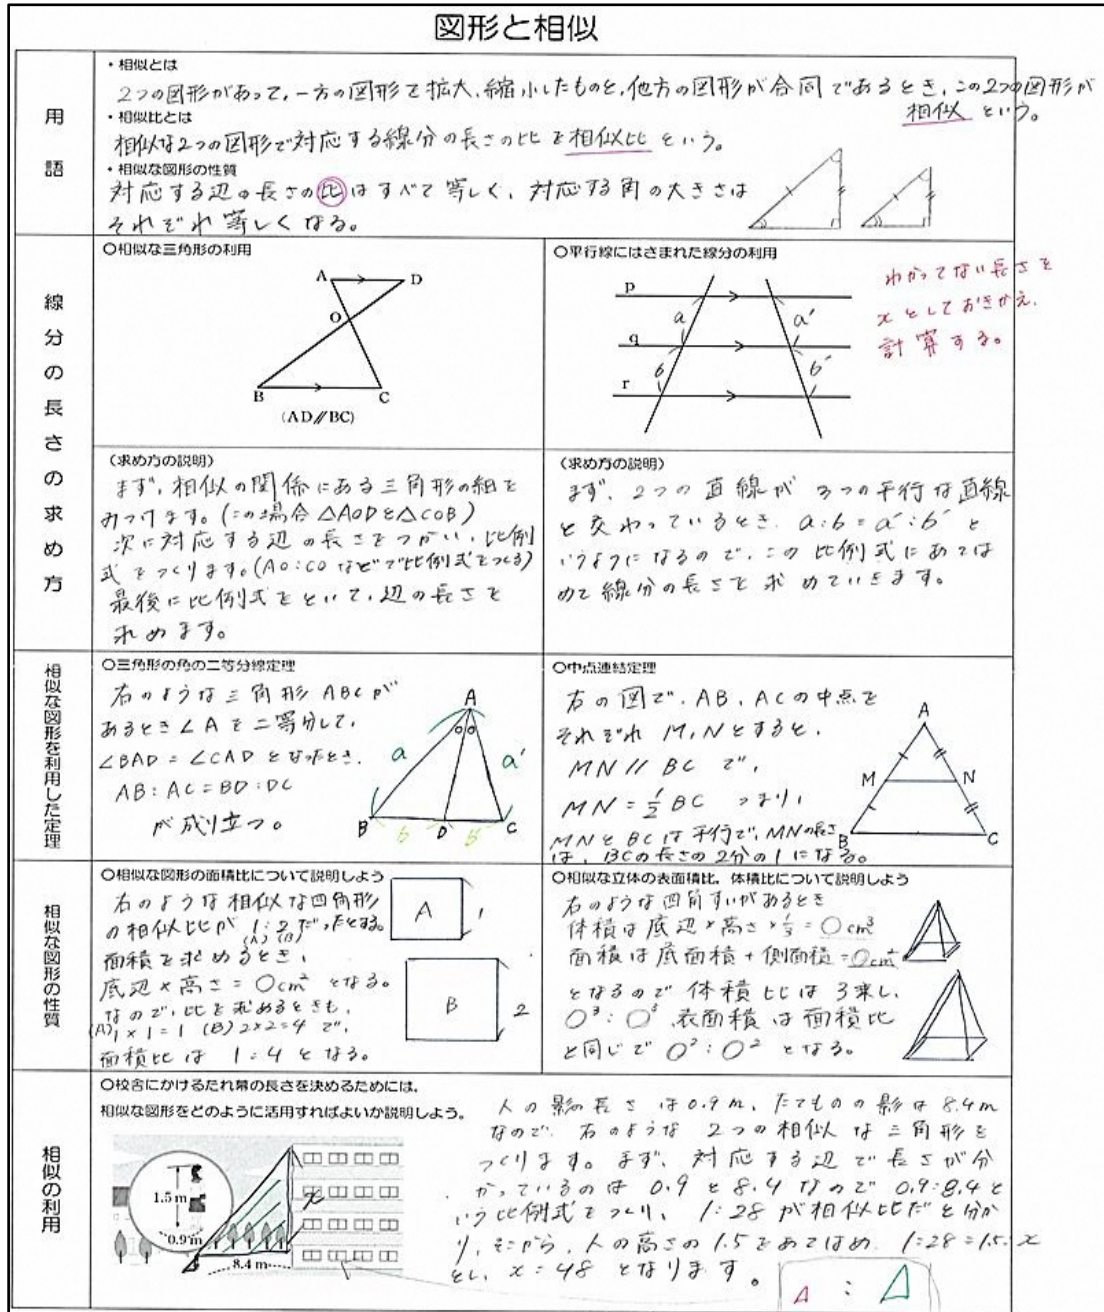 図形と相似
用語
・相似とは
2つの図形があって、一方の図形を拡大、縮小したものと、他方の図形が合同であるとき、この2つの図形が
相似 という。
・相似比とは
相似な2つの図形で対応する線分の長さの比を相似比という。
・相似な図形の性質
対応する辺の長さの比はすべて等しく、対応する角の大きさは
それぞれ等しくなる。
線分の長さの求め方
○相似な三角形の利用
A D
O
B C
(AD//BC)
(求め方の説明)
まず、相似の関係にある三角形の組を
みつけます。(この場合 △AODと△COB)
次に対応する辺の長さをつかい、比例
式をつくります。(AO:COなどで比例式をつくる)
最後に比例式をといて、辺の長さを
求めます。
○平行線にはさまれた線分の利用
p
a a'
q
b b'
r
わかってない長さを
xとしておきかえ、
計算する。
(求め方の説明)
まず、2つの直線が3つの平行な直線
と交わっているとき、a:b=a':b'と
いうようになるので、この比例式にあては
めて線分の長さを求めていきます。
相似な図形を利用した定理
○三角形の角の二等分線定理
右のような三角形ABCが
あるとき∠Aを二等分して、
∠BAD=∠CADとなったとき、
AB:AC=BD:DC
が成り立つ。
A
a a'
B D C
b b'
○中点連結定理
右の図で、AB、ACの中点を
それぞれM,Nとすると、
MN//BCで、
MN=1/2BC つまり、
MNとBCは平行で、MNの長さ
は、BCの長さの2分の1になる。
A
M N
B C
相似な図形の性質
○相似な図形の面積比について説明しよう
右のような相似な四角形
の相似比が1:2だったとする。
(A) (B)
面積を求めるとき、
底辺×高さ=○cm²となる。
なので、比を求めるときも、
(A)1×1=1 (B)2×2=4で、
面積比は1:4となる。
A 1
B 2
○相似な立体の表面積比、体積比について説明しよう
右のような四角すいがあるとき
体積は底辺×高さ×1/3=○cm³
面積は底面積+側面積=○cm²
となるので体積比は3乗し、
○³:○³、表面積は面積比
と同じで○²:○²となる。
相似の利用
○校舎にかけるたれ幕の長さを決めるためには、
相似な図形をどのように活用すればよいか説明しよう。
1.5m
0.9m
8.4m
x
人の影の長さは0.9m、たてものの影は8.4m
なので、右のような2つの相似な三角形を
つくります。まず、対応する辺で長さが分
かっているのは0.9と8.4なので0.9:8.4と
いう比例式をつくり、1:28が相似比だと分か
り、そこから、人の高さの1.5をあてはめ、1:28=1.5:x
とし、x=48となります。
: